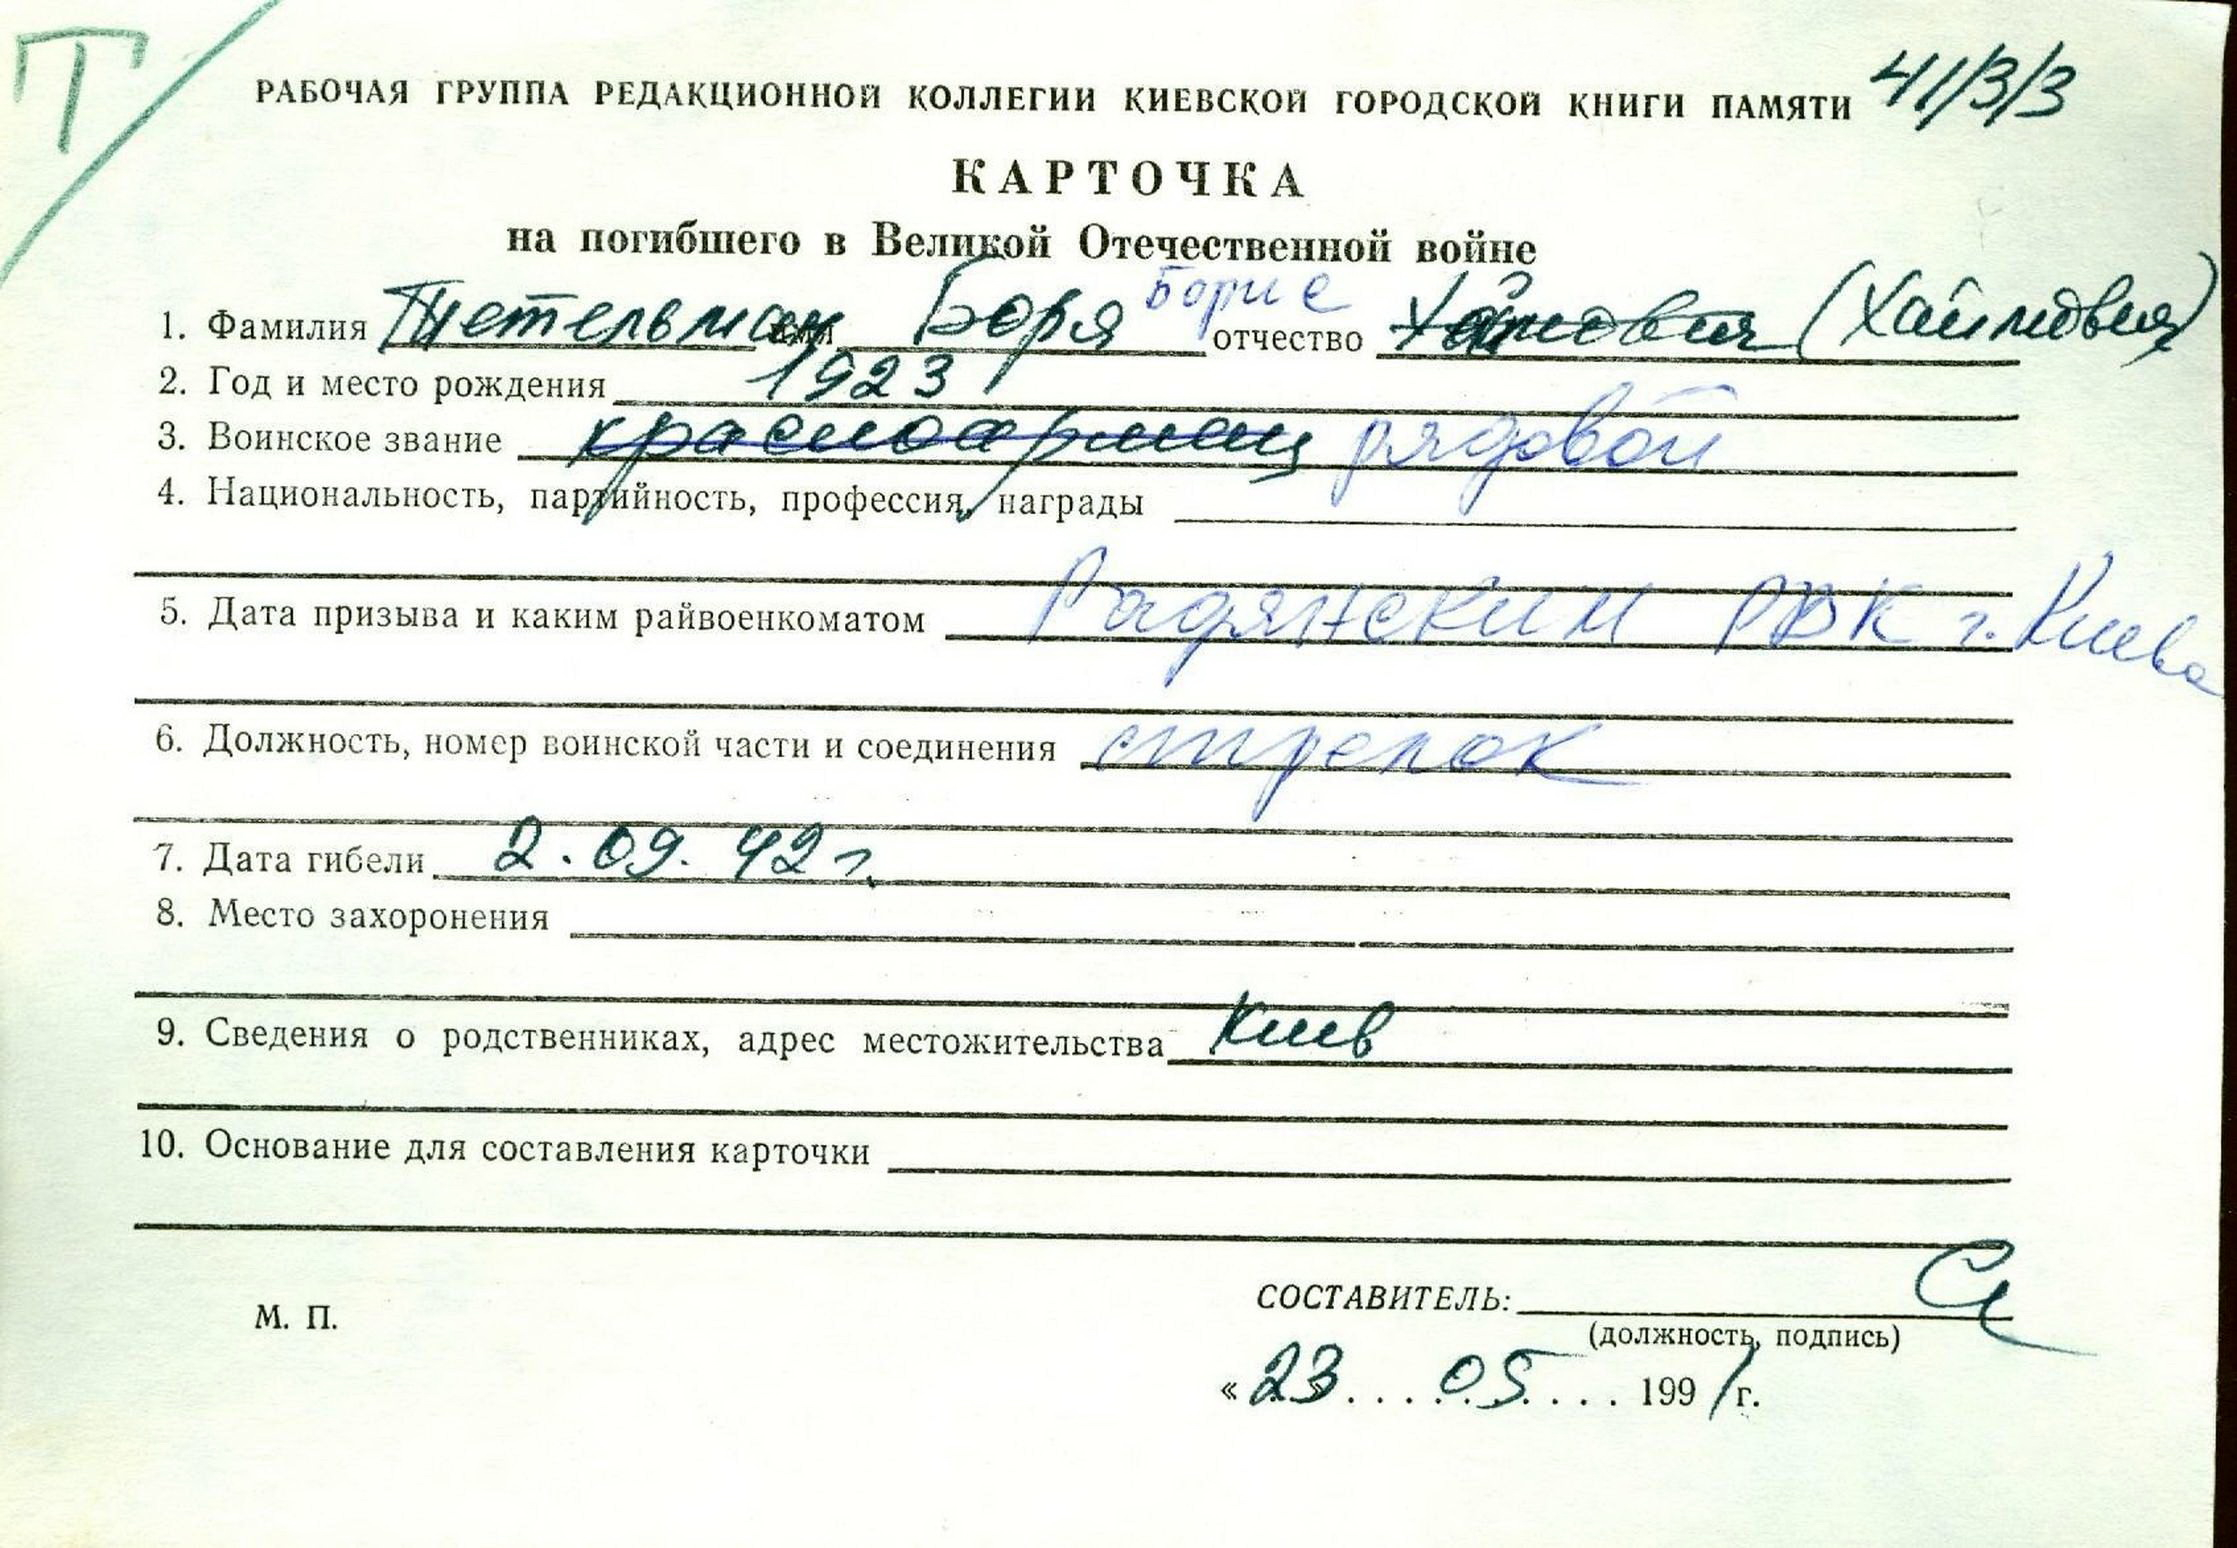 Т
РАБОЧАЯ ГРУППА РЕДАКЦИОННОЙ КОЛЛЕГИИ КИЕВСКОЙ ГОРОДСКОЙ КНИГИ ПАМЯТИ 41/3/3
КАРТОЧКА
на погибшего в Великой Отечественной войне
Борис
1. Фамилия Тетельман имя Боря отчество (Хаимович)
2. Год и место рождения 1923
3. Воинское звание красноармеец рядовой
4. Национальность, партийность, профессия, награды
5. Дата призыва и каким райвоенкоматом Радянским РВК г. Киева
6. Должность, номер воинской части и соединения стрелок
7. Дата гибели 2.09.42 г.
8. Место захоронения
9. Сведения о родственниках, адрес местожительства Киев
10. Основание для составления карточки
М. П. СОСТАВИТЕЛЬ:
(должность, подпись)
«23» .... 05 .... 1991 г.